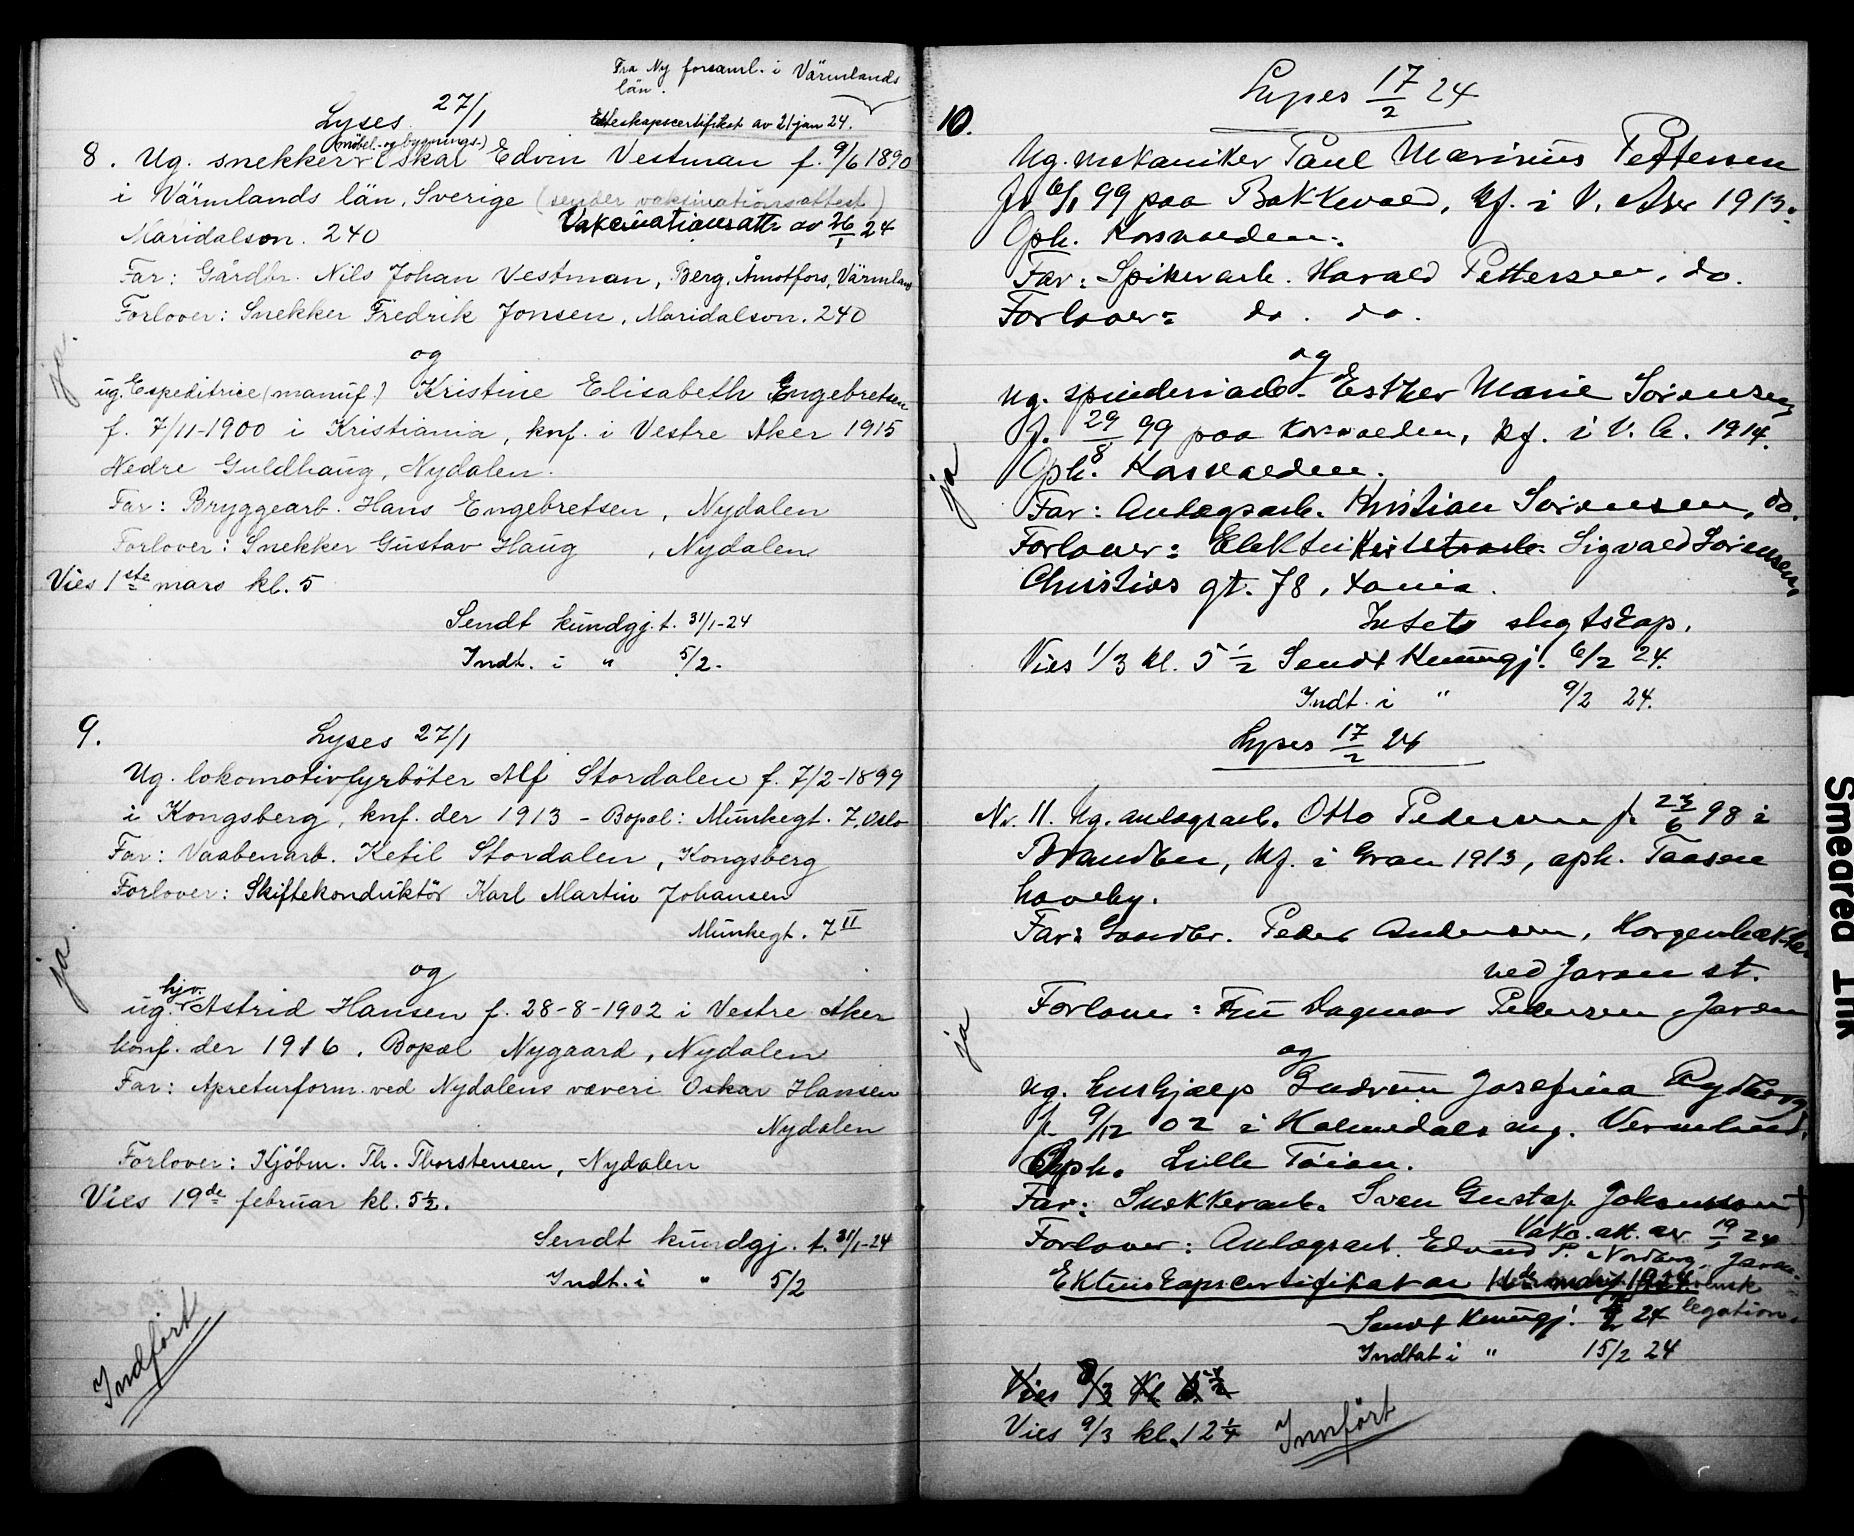 Fra Ny forsaml. i Värmlands
län.
Lyses 27/1
Ekteskapscertifikat av 21 jan 24.
(möbel- og bygnings-)
8. Ug. snekker Oskar Edvin Vestman f. 9/6 1890
i Värmlands län, Sverige (sender vaksinationsattest)
Maridalsvn. 240 Vakcinationsatt. av 26/1 24
Far: Gårdbr. Nils Johan Vestman, Berg, Åmotfors, Värmland
Forlover: Snekker Fredrik Jonsen, Maridalsvn. 240
og
ja.
ug. Expeditrice (manuf.) Kristine Elisabeth Engebretsen
f. 7/11-1900 i Kristiania, knf. i Vestre Aker 1915
Nedre Guldhaug, Nydalen.
Far: Bryggearb. Hans Engebretsen, Nydalen
Forlover: Snekker Gustav Haug, Nydalen
Vies 1ste mars kl. 5
Sendt kundgj. t. 31/1-24
Indt. i " 5/2.
9.
Lyses 27/1
Ug. lokomotivfyrböter Alf Stordalen f. 7/2-1899
i Kongsberg, knf. der 1913 - Bopæl: Munkegt. 7, Oslo
Far: Vaabenarb. Ketil Stordalen, Kongsberg
Forlover: Skiftekonduktör Karl Martin Johansen
Munkegt. 7 II
ja.
og
hjv.
ug. Astrid Hansen f. 28-8-1902 i Vestre Aker
konf. der 1916. Bopæl Nygaard, Nydalen
Far: Apreturform. ved Nydalens væveri Oskar Hansen
Nydalen
Forlover: Kjöbm. Th. Thorstensen, Nydalen
Vies 19de februar kl. 5 1/2.
Sendt kundgj. t. 31/1-24
Indt. i " 5/2
Indfört
10.
Lyses 17/2 24
Ug. mekaniker Paul Marinius Pettersen
f. 6/1 99 paa Bakkevold, kf. i V. Aker 1913.
Oph. Korsvolden.
Far: Spikerarb. Harald Pettersen, do.
Forlover: do. do.
og
Ug. spinderiarb. Esther Marie Sörensen
f. 29/8 99 paa Korsvolden, kf. i V. A. 1914.
ja
Oph. Korsvolden.
Far: Anlægsarb. Kristian Sörensen, do.
Forlover: Sigvald Sörensen,
Christies gt. 78, Xania.
Intet slegtskap.
Vies 1/3 kl. 5 1/2 Sendt Kunngj. 6/2 24.
Indt. i " 9/2 24.
Lyses 17/2 24
Nr. 11. Ug. anlægsarb. Otto Pedersen f. 23/6 98 i
Brandbu, kf. i Gran 1913, oph. Taasen
haveby.
Far: Gaardbr. Peder Andersen,
ved Jaren st.
Forlover: Fru Dagmar Pedersen, Jaren
ja
og
Ug. hushjælp Gudrun Josefina Rydberg
f. 9/12 02 i Holmedals Vermland.
Oph. Lille Töien.
Far: Snekkerarb. Sven Gustaf Johansson †
Vakc. att. av 19/1 24
Forlover: Anlægsarb. Edvard P. Nordberg, Jaren.
Ekteskapscertifikat av
legation.
Sendt Kunngj. 24
Indtat i " 15/2 24
Vies 8/3 Kl. 5 1/2
Vies 9/3 kl. 12 1/4
Innfört
Smeared Ink